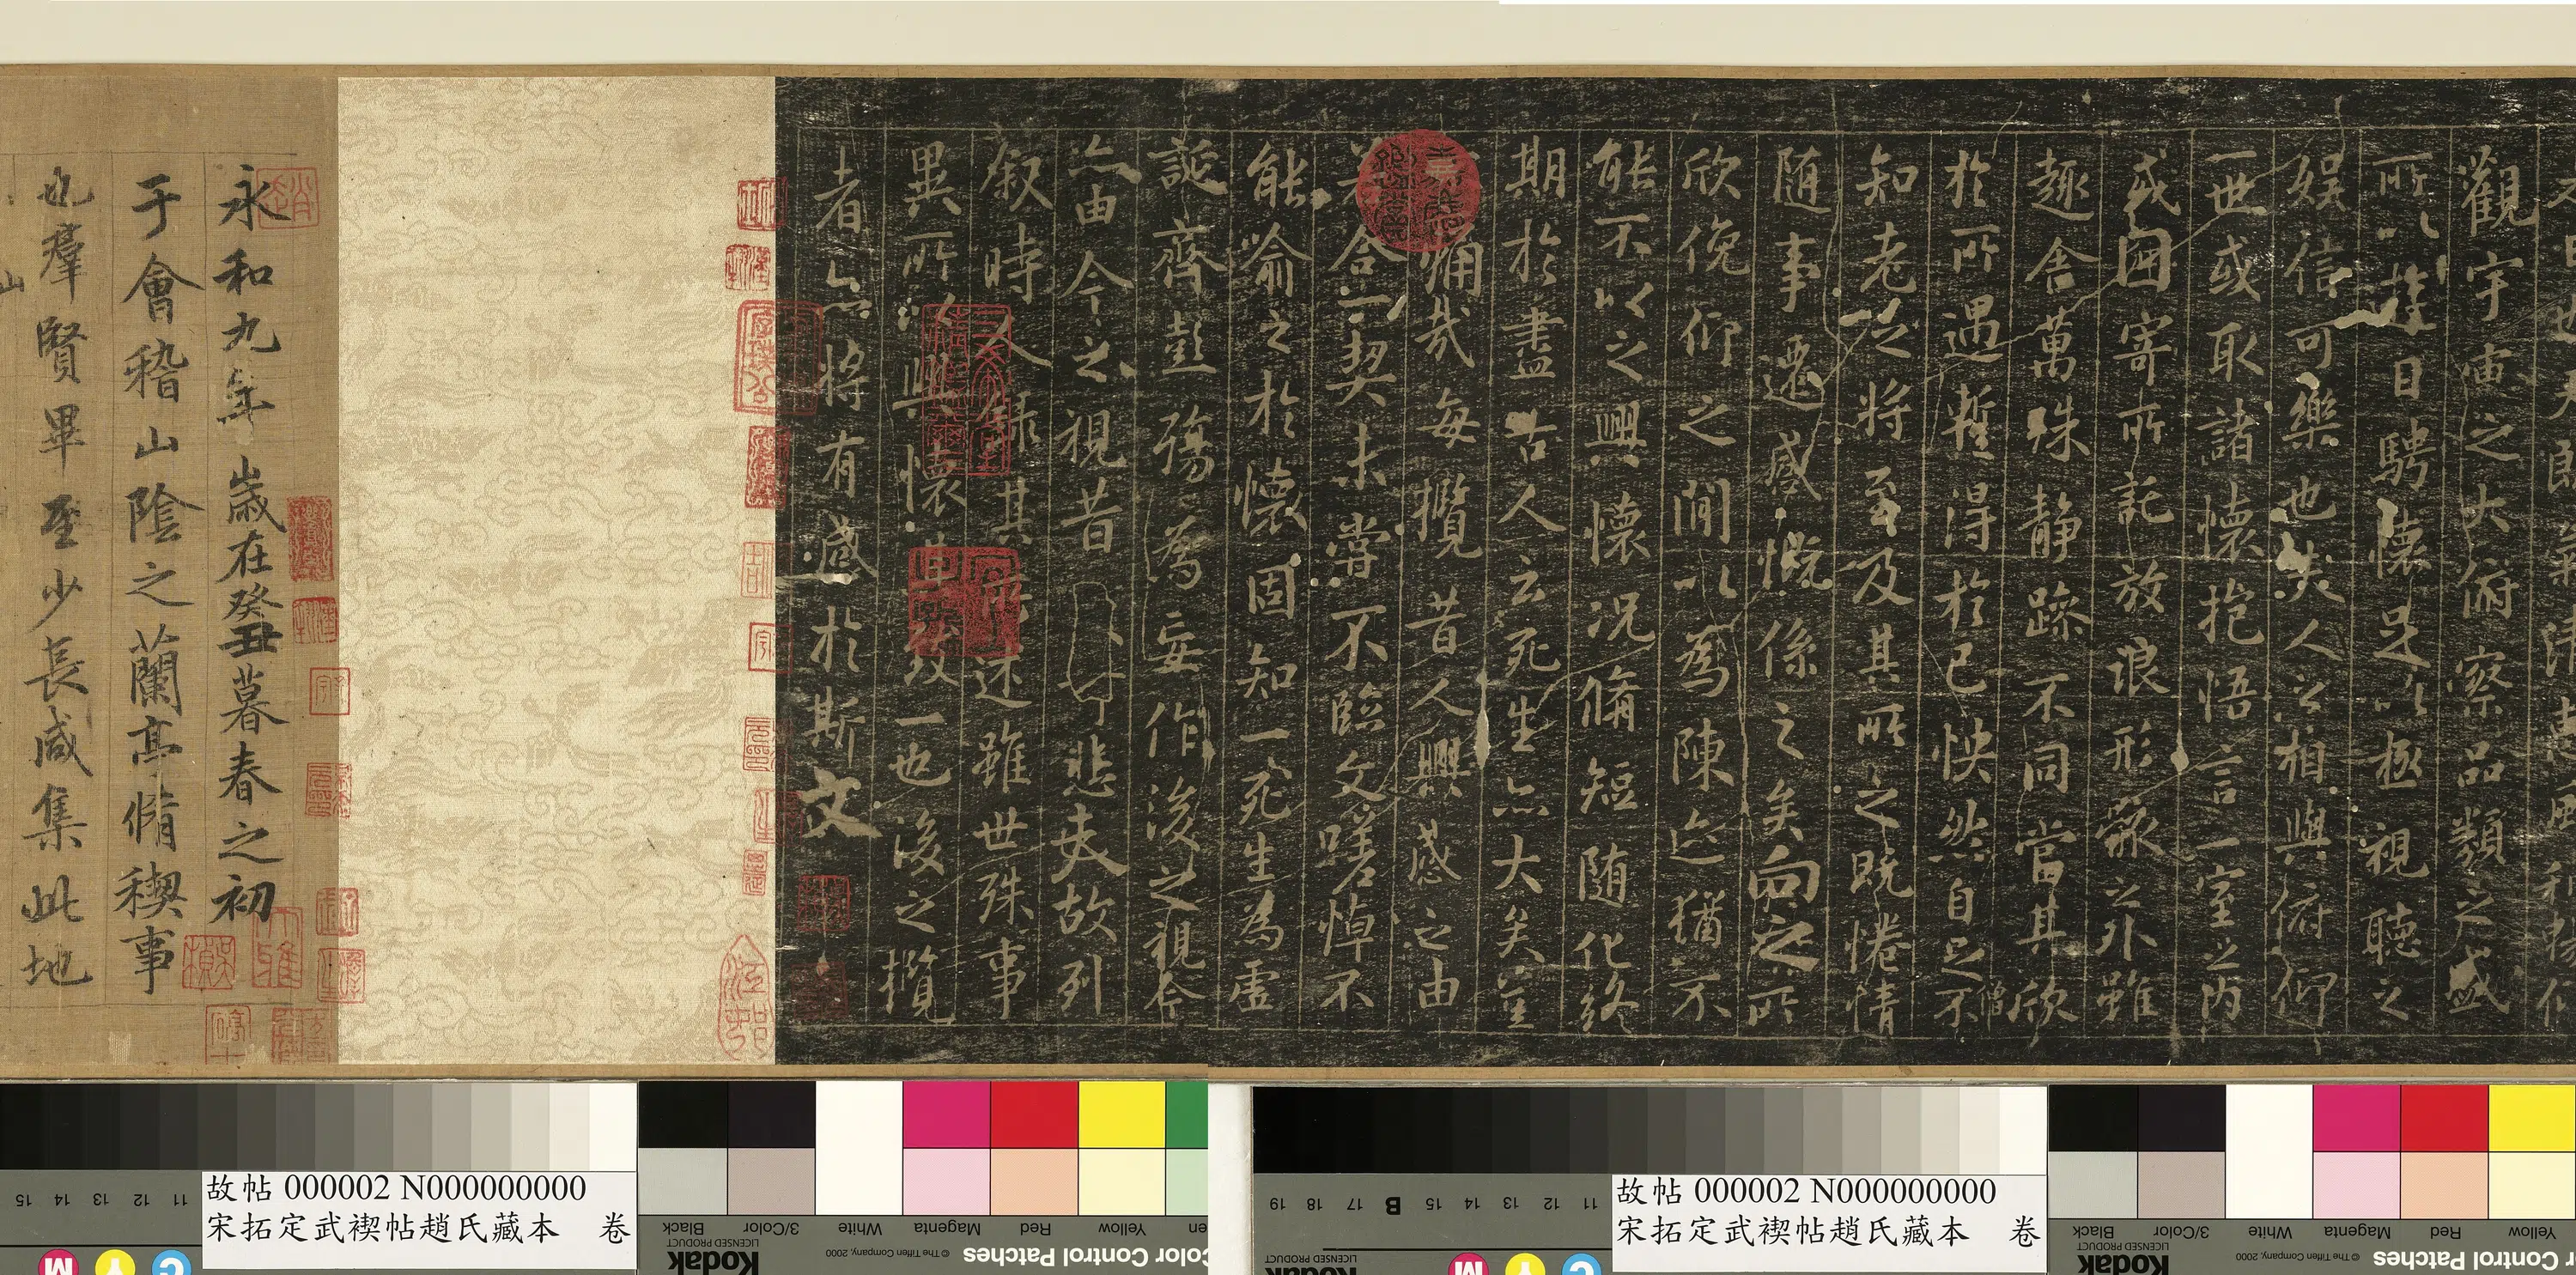 觀宇宙之大俯察品類之盛
所以遊目騁懷足以極視聽之
娛信可樂也夫人之相與俯仰
一世或取諸懷抱悟言一室之內
或因寄所託放浪形骸之外雖
趣舍萬殊靜躁不同當其欣
於所遇蹔得於己怏然自足不
知老之將至及其所之既惓情
随事遷感慨係之矣向之所
欣俛仰之閒以為陳迹猶不
能不以之興懷況脩短随化終
期於盡古人云死生亦大矣豈
不痛哉每攬昔人興感之由
若合一契未嘗不臨文嗟悼不
能喻之於懷固知一死生為虛
誕齊彭殤為妄作後之視今
亦由今之視昔悲夫故列
叙時人錄其所述雖世殊事
異所以興懷其致一也後之攬
者亦將有感於斯文
永和九年歲在癸丑暮春之初
于會稽山陰之蘭亭脩稧事
也羣賢畢至少長咸集此地
山
故帖 000002 N000000000
宋拓定武禊帖趙氏藏本 卷
故帖 000002 N000000000
宋拓定武禊帖趙氏藏本 卷
15 14 13 12 11
Black 3/Color White Magenta Red Yellow
Kodak
LICENSED PRODUCT
© The Tiffen Company, 2000
Color Control Patches
M Y C
19 18 17 B 15 14 13 12 11
Black 3/Color White Magenta Red Yellow
Kodak
LICENSED PRODUCT
© The Tiffen Company, 2000
Color Control Patches
M Y C